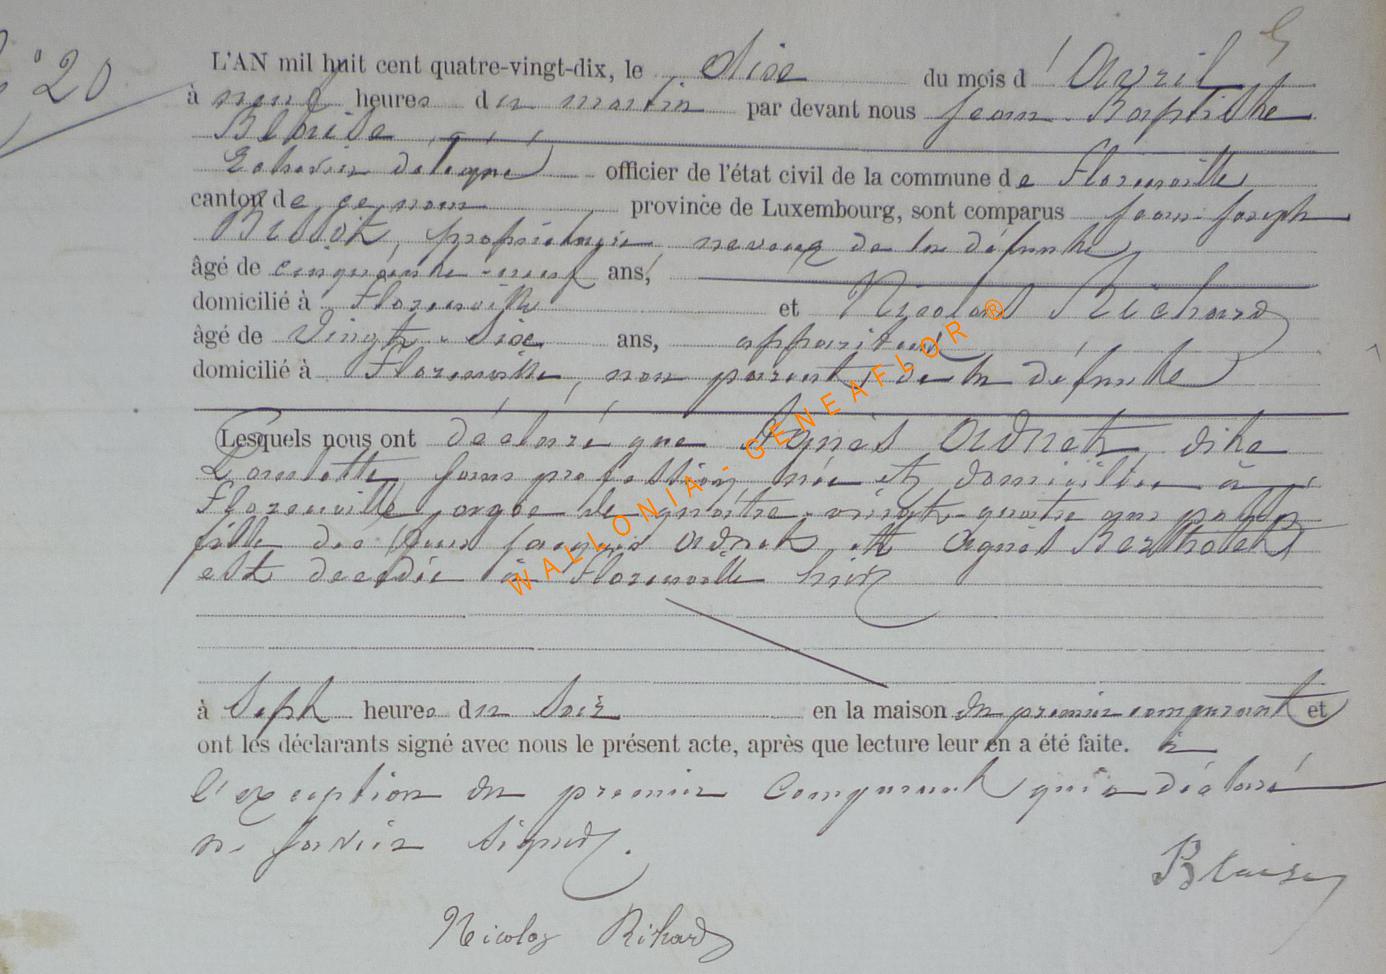 N° 20
L'AN mil huit cent quatre-vingt-dix, le dix du mois d'Avril
à neuf heures du matin par devant nous Jean Baptiste
Blaise
Echevin délégué officier de l'état civil de la commune de Florenville
canton de ce nom province de Luxembourg, sont comparus Jean Joseph
propriétaire neveux de la défunte
âgé de cinquante-neuf ans,
domicilié à Florenville et Nicolas Richard
âgé de Vingt-Six ans, appariteur
domicilié à Florenville, non parent de la défunte
Lesquels nous ont déclaré que Agnès Adnet dite
sans profession née et domiciliée à
Florenville, agée de quatre-vingt-quatre ans
fille des feus Jacques Adnet et Agnès Bertholet
est décédée à Florenville hier
à Sept heures du Soir en la maison du premier comparant et
ont les déclarants signé avec nous le présent acte, après que lecture leur en a été faite. à
l'exception du premier Comparant qui a déclaré
ne savoir Signer.
Blaise
Nicolas Rihard
WALLONIA - GENEAFLOR ®